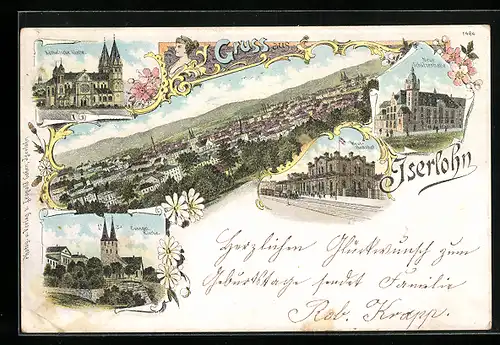 1486
Gruss aus
Katholische Kirche
Neue
Schützenhalle
West-
Bahnhof
Iserlohn
Evangel.
Kirche
Herzlichen Glückwunsch zum
Geburtstage sendet Familie
Rob. Krapp.